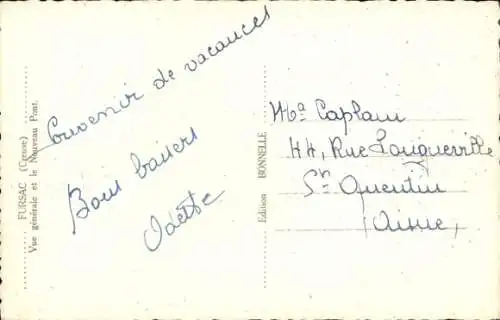 FURSAC (Creuse)
Vue générale et le Nouveau Pont.
Souvenir de vacances
Bons baisers
Odette
Edition BONNELLE
Caplain
44, Rue Longueville
St Quentin
(Aisne)